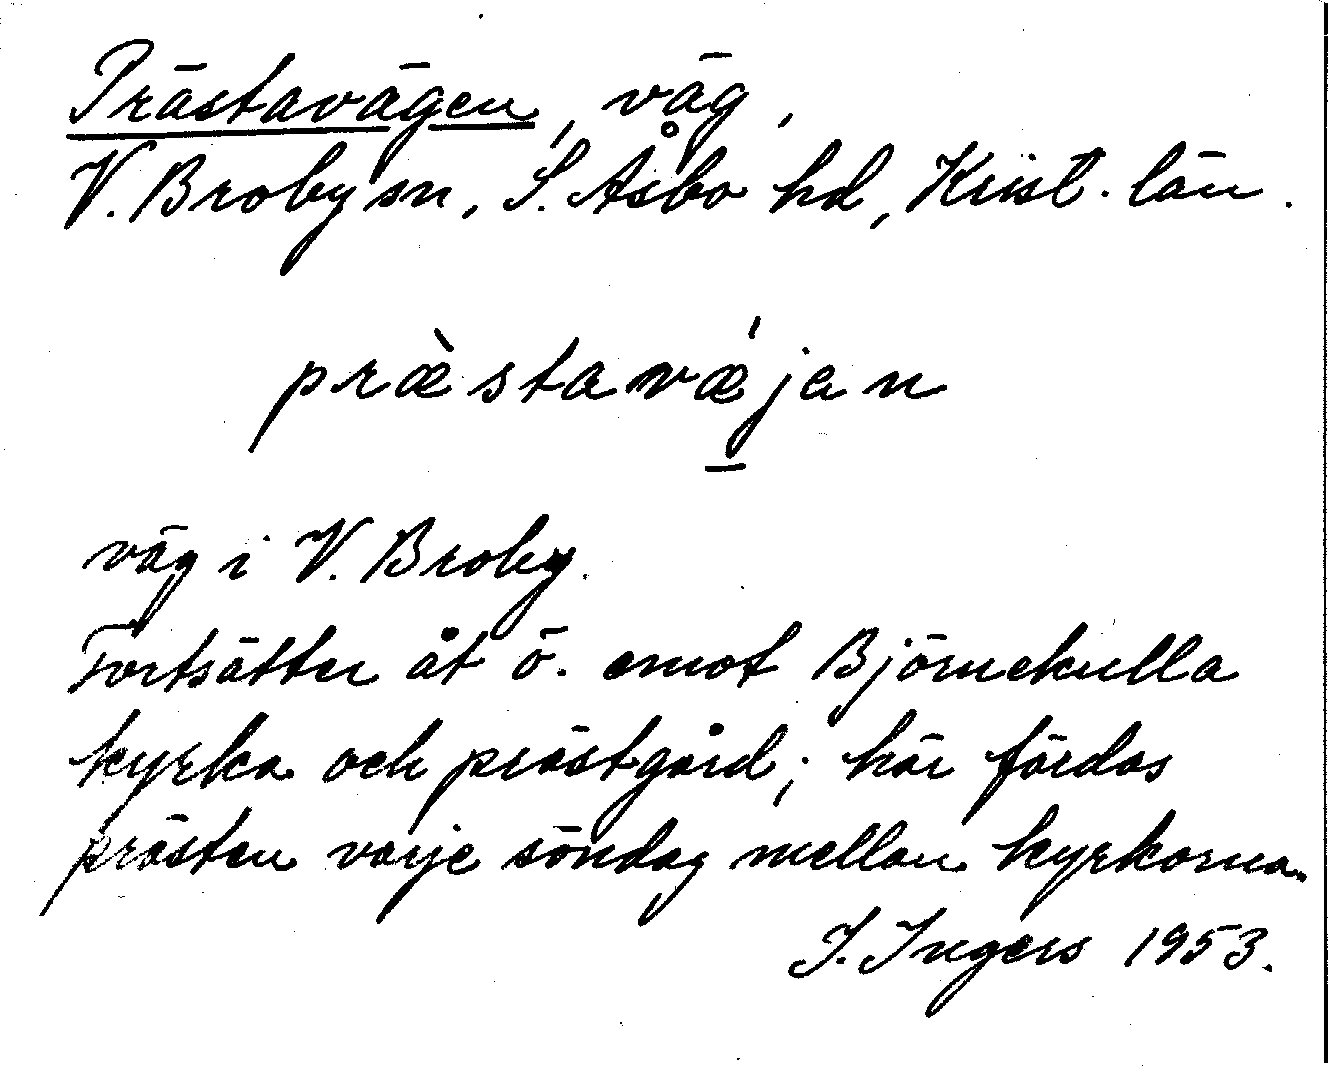 Prästavägen, väg,
V. Broby sn, S. Åsbo hd, Krist. län.
præ̀stavǽjan
väg i V. Broby.
Fortsätter åt ö. emot Björnekulla
kyrka och prästgård; här färdas
prästen varje söndag mellan kyrkorna.
I. Ingers 1953.